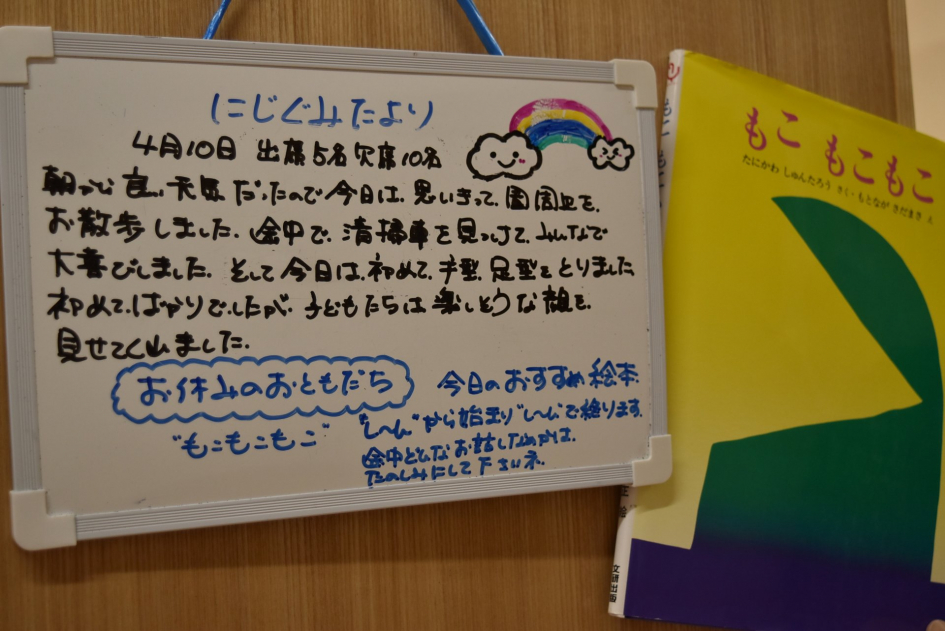 にじぐみたより
4月10日 出席5名欠席10名
朝から良い天気だったので今日は、思いきって、園周辺を、
お散歩しました。途中で、清掃車を見つけて、みんなで
大喜びしました。そして今日は、初めて、手型、足型をとりました
初めて、ばかりでしたが、子どもたちは楽しそうな顔を、
見せてくれました。
お休みのおともだち
今日のおすすめ絵本
"もこもこもこ"
"しーん"から始まり"しーん"で終ります。
途中どんなお話しなのかは、
たのしみにして下さいネ。
もこ もこもこ
たにかわ しゅんたろう さく・もとなが さだまさ え
文研出版